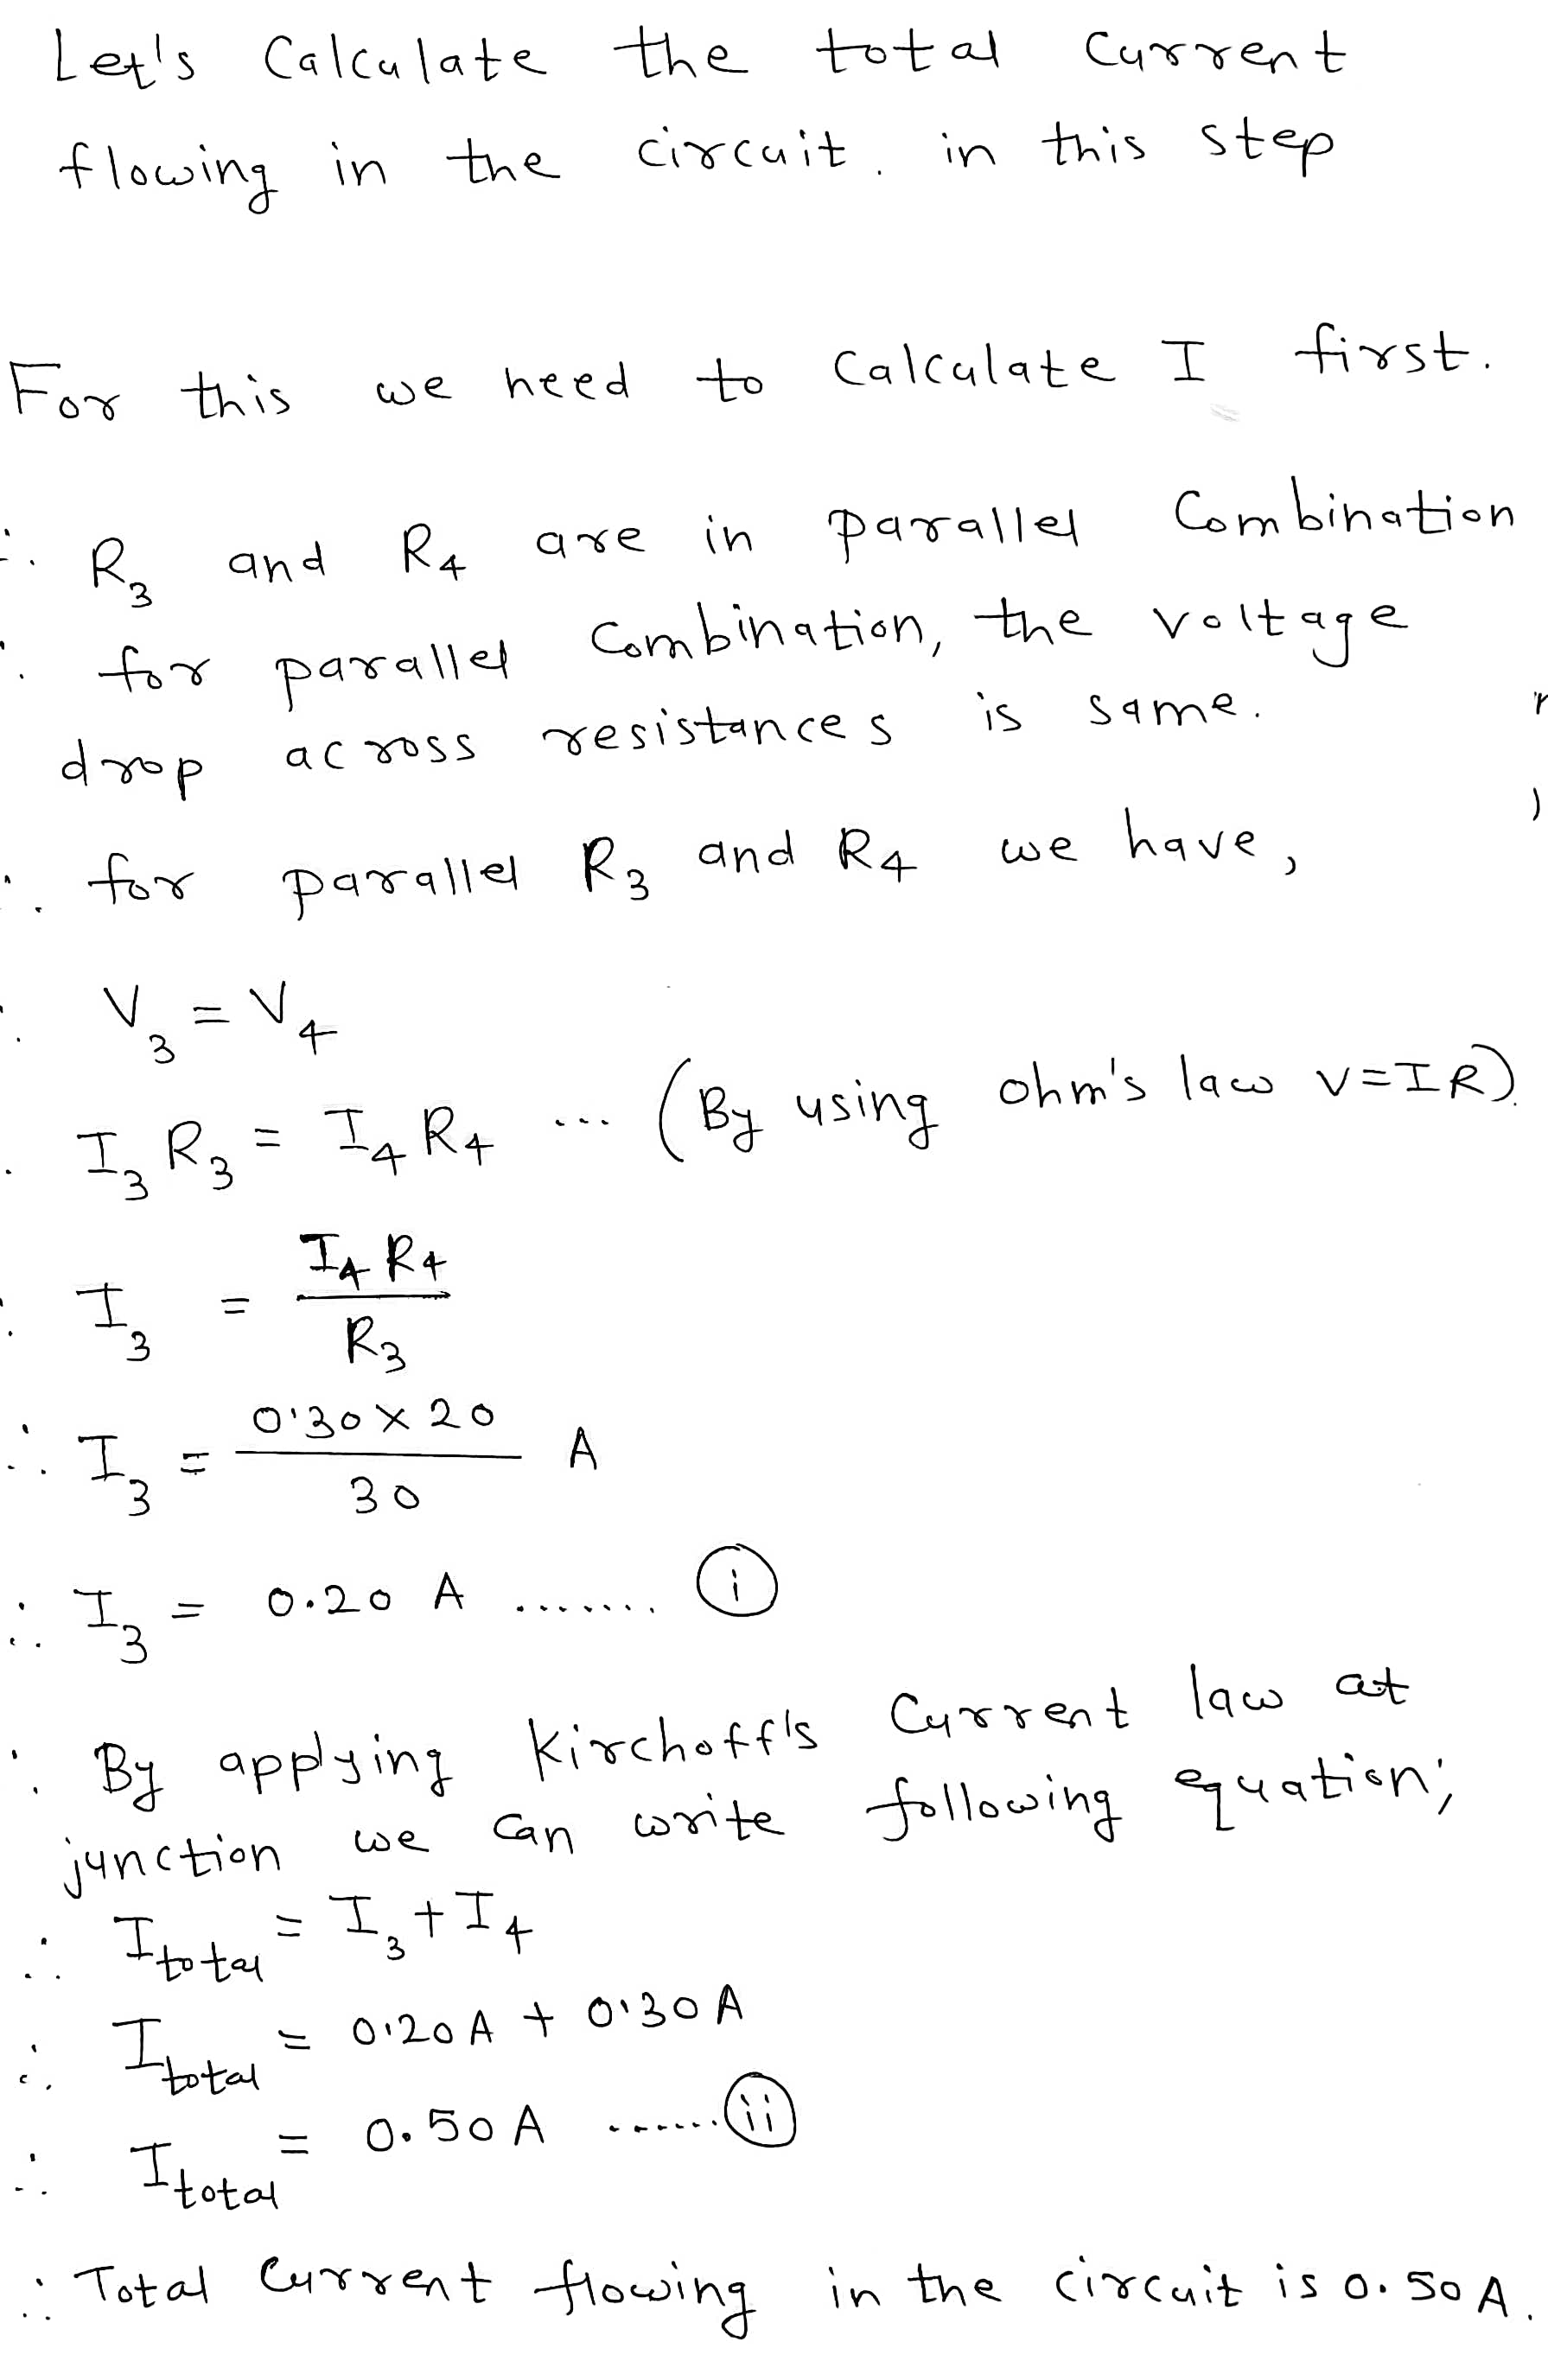 Let's Calculate the total Current
flowing in the circuit. in this step
For this we need to Calculate I first.
∴ R₃ and R₄ are in parallel Combination
∴ for parallel Combination, the voltage
drop across resistances is same.
∴ for parallel R₃ and R₄ we have,
∴ V₃ = V₄
∴ I₃ R₃ = I₄ R₄ ... (By using ohm's law V=IR).
∴ I₃ = I₄ R₄ / R₃
∴ I₃ = 0.30 × 20 / 30 A
∴ I₃ = 0.20 A ....... (i)
∴ By applying Kirchoff's Current law at
junction we can write following equation;
∴ I total = I₃ + I₄
∴ I total = 0.20 A + 0.30 A
∴ I total = 0.50 A ...... (ii)
∴ Total Current flowing in the circuit is 0.50 A.